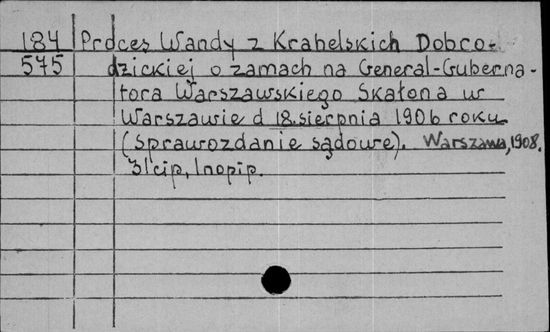 184 Proces Wandy z Krahelskich Dobro-
575 dzickiej o zamach na General-Guberna-
tora Warszawskiego Skałona w
Warszawie d 18. sierpnia 1906 roku
(Sprawozdanie sądowe). Warszawa, 1908.
31 cip, Inopip.